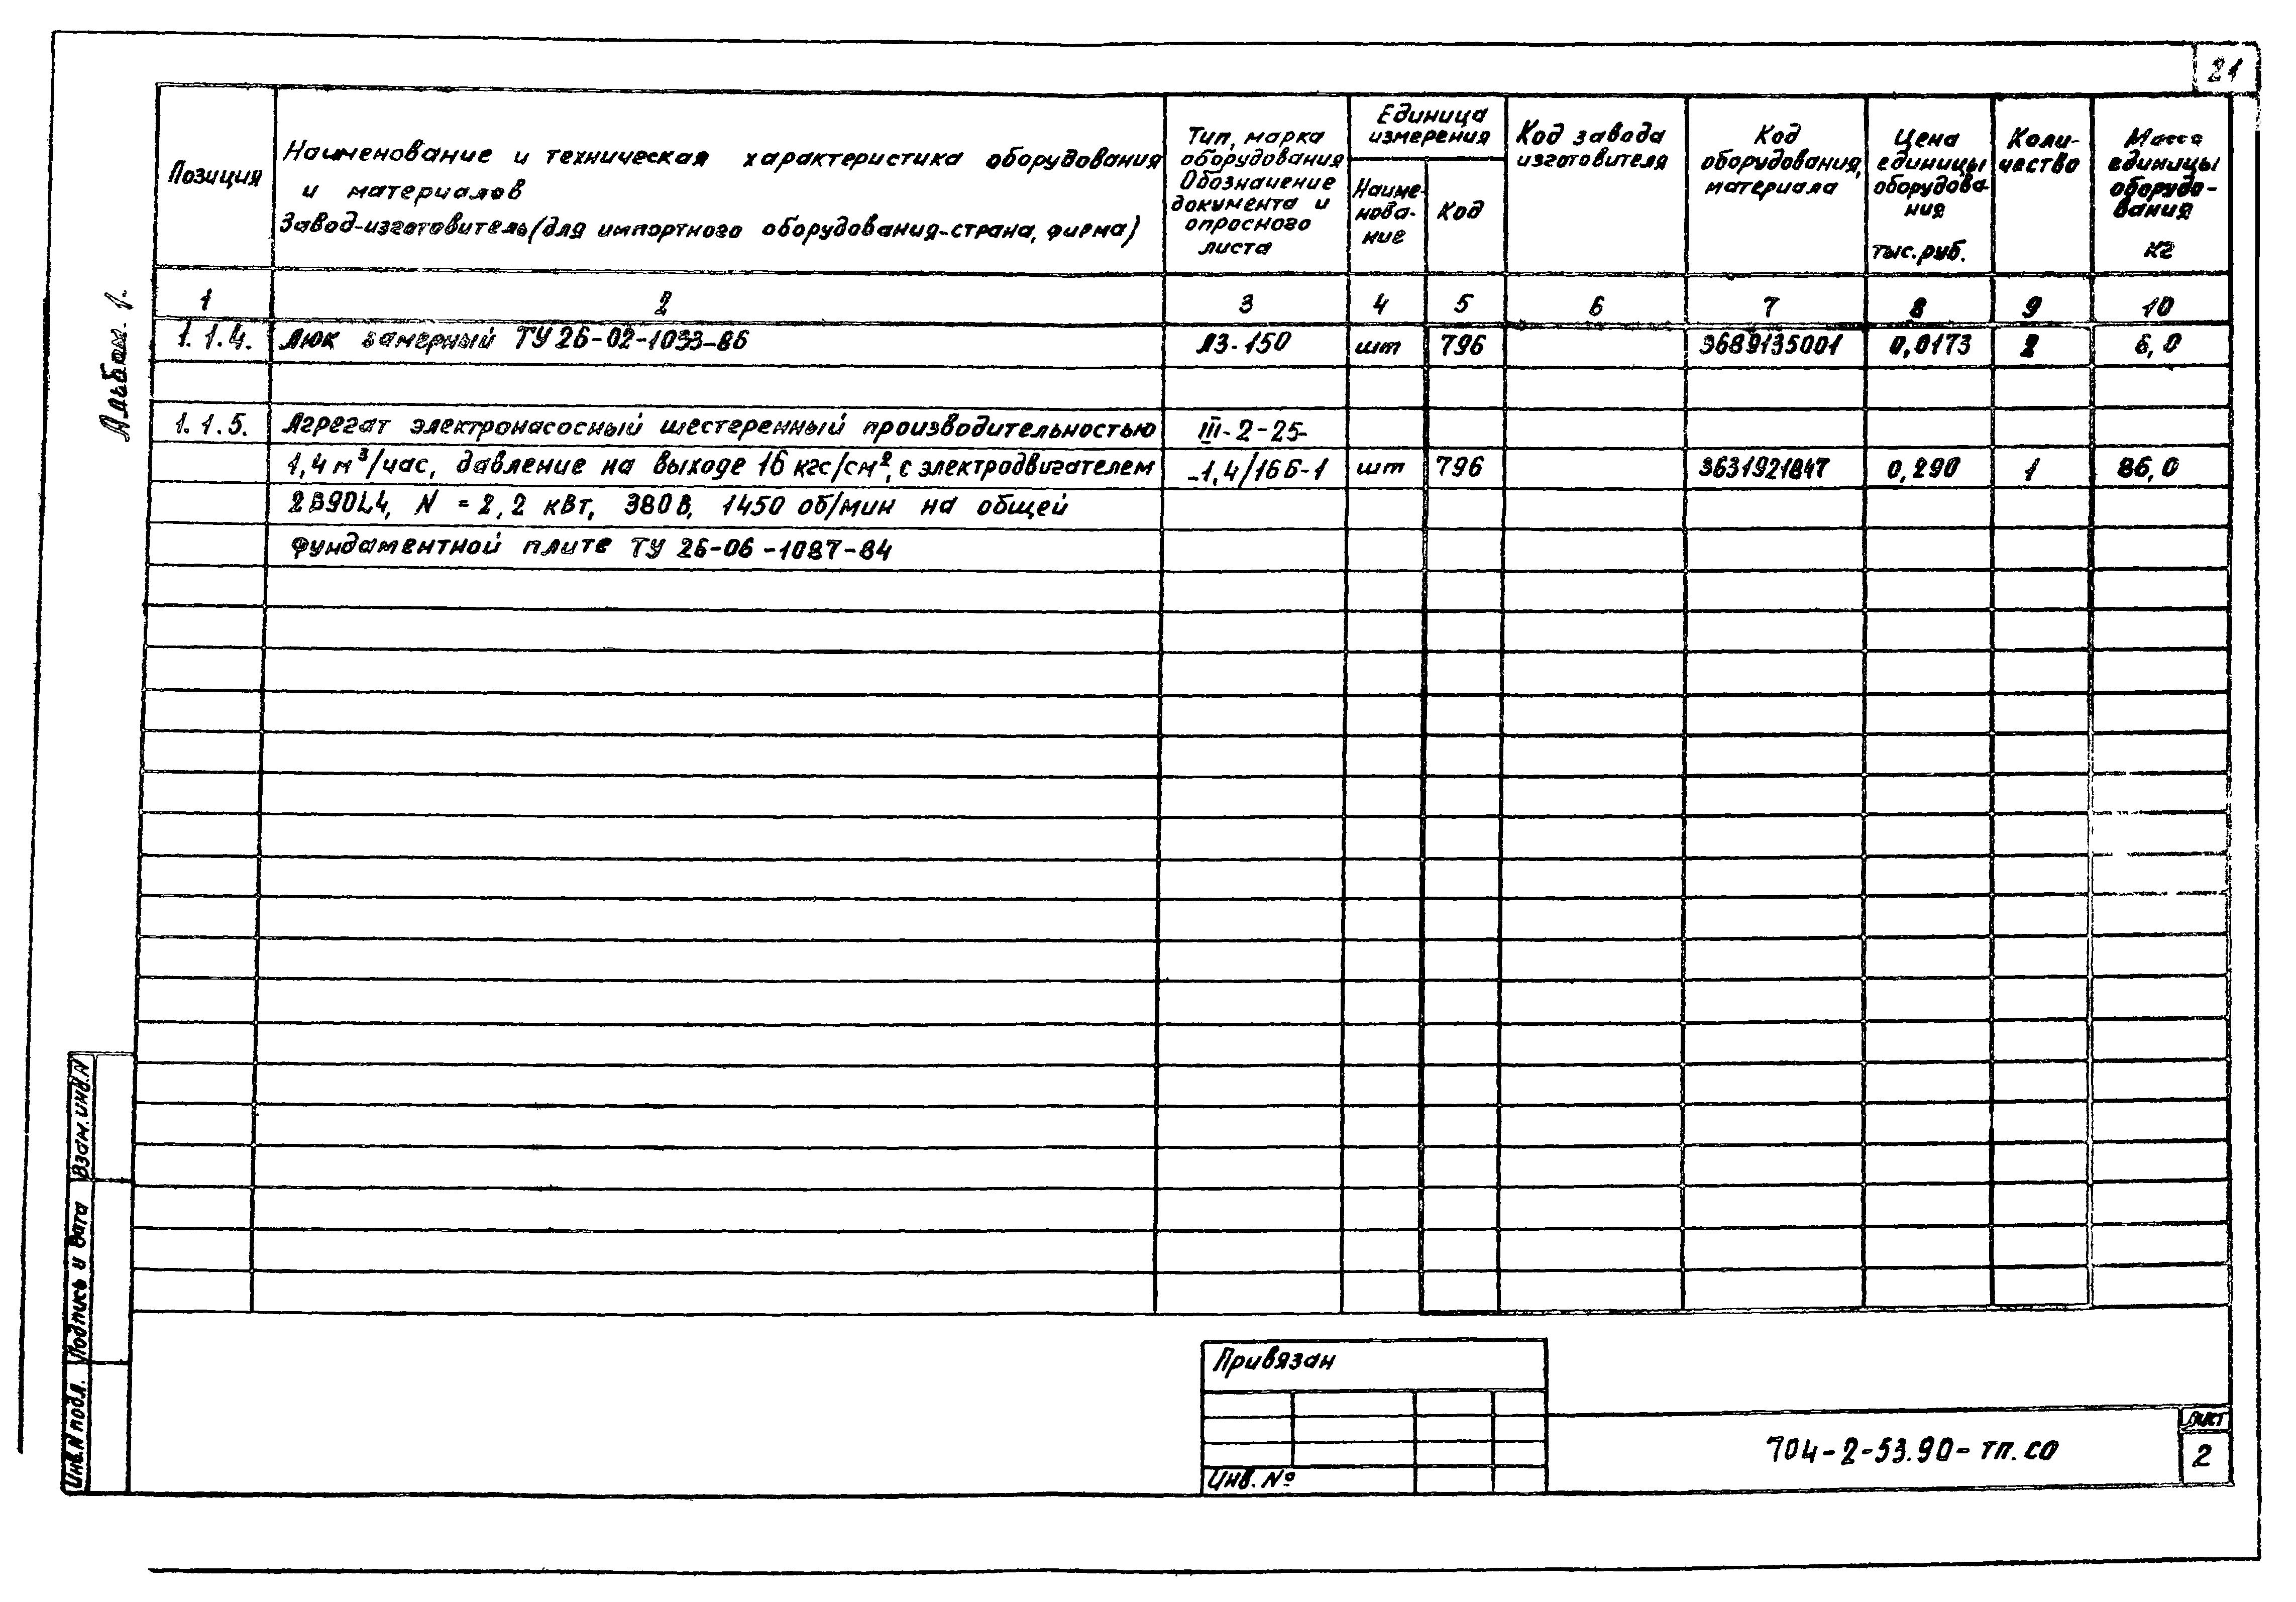 21
Альбом 1.
Позиция
Наименование и техническая характеристика оборудования
и материалов
Завод-изготовитель (для импортного оборудования-страна, фирма)
Тип, марка
оборудования
Обозначение
документа и
опросного
листа
Единица
измерения
Наиме-
нова-
ние
Код
Код завода
изготовителя
Код
оборудования,
материала
Цена
единицы
оборудова-
ния
тыс. руб.
Коли-
чество
Масса
единицы
оборудо-
вания
кг
1 2 3 4 5 6 7 8 9 10
1.1.4. Люк замерный ТУ 26-02-1033-86 ЛЗ-150 шт 796 3689135001 0,0173 2 6,0
1.1.5. Агрегат электронасосный шестеренный производительностью III-2-25-
1,4 м³/час, давление на выходе 16 кгс/см², с электродвигателем -1,4/16Б-1 шт 796 3631921847 0,290 1 86,0
2В90L4, N = 2,2 кВт, 380В, 1450 об/мин на общей
фундаментной плите ТУ 26-06-1087-84
Взам. инв. N
Подпись и дата
Инв. N подл.
Привязан
Инв. №
704-2-53.90-ТП.СО
Лист
2